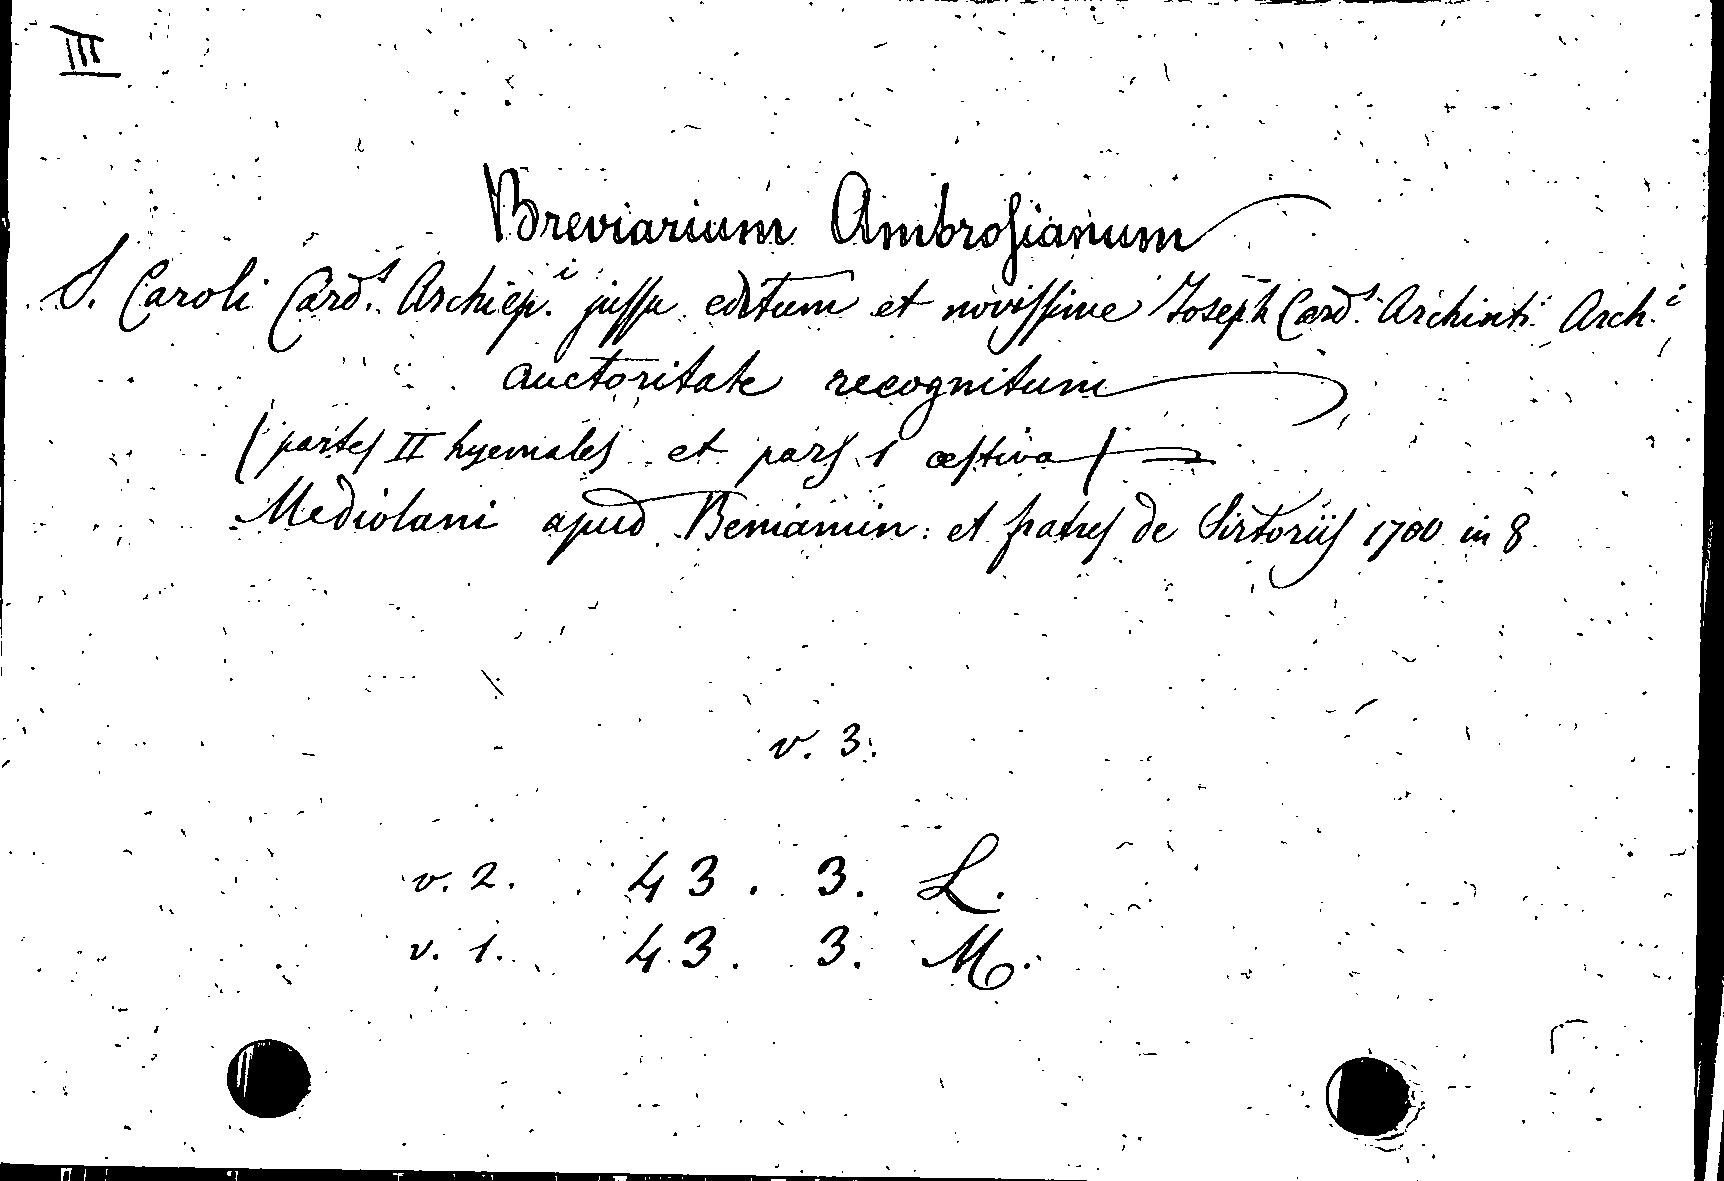 III
Breviarium Ambrosianum
S. Caroli Card.s Archiep.i jussu editum et novissime Joseph Card.s Archinti Arch.i
auctoritate recognitum
(partes II hyemales et pars 1 æstiva)
Mediolani apud Beniamin: et fratres de Sirtoriis 1700 in 8
v. 3.
v. 2. 43. 3. L.
v. 1. 43. 3. M.